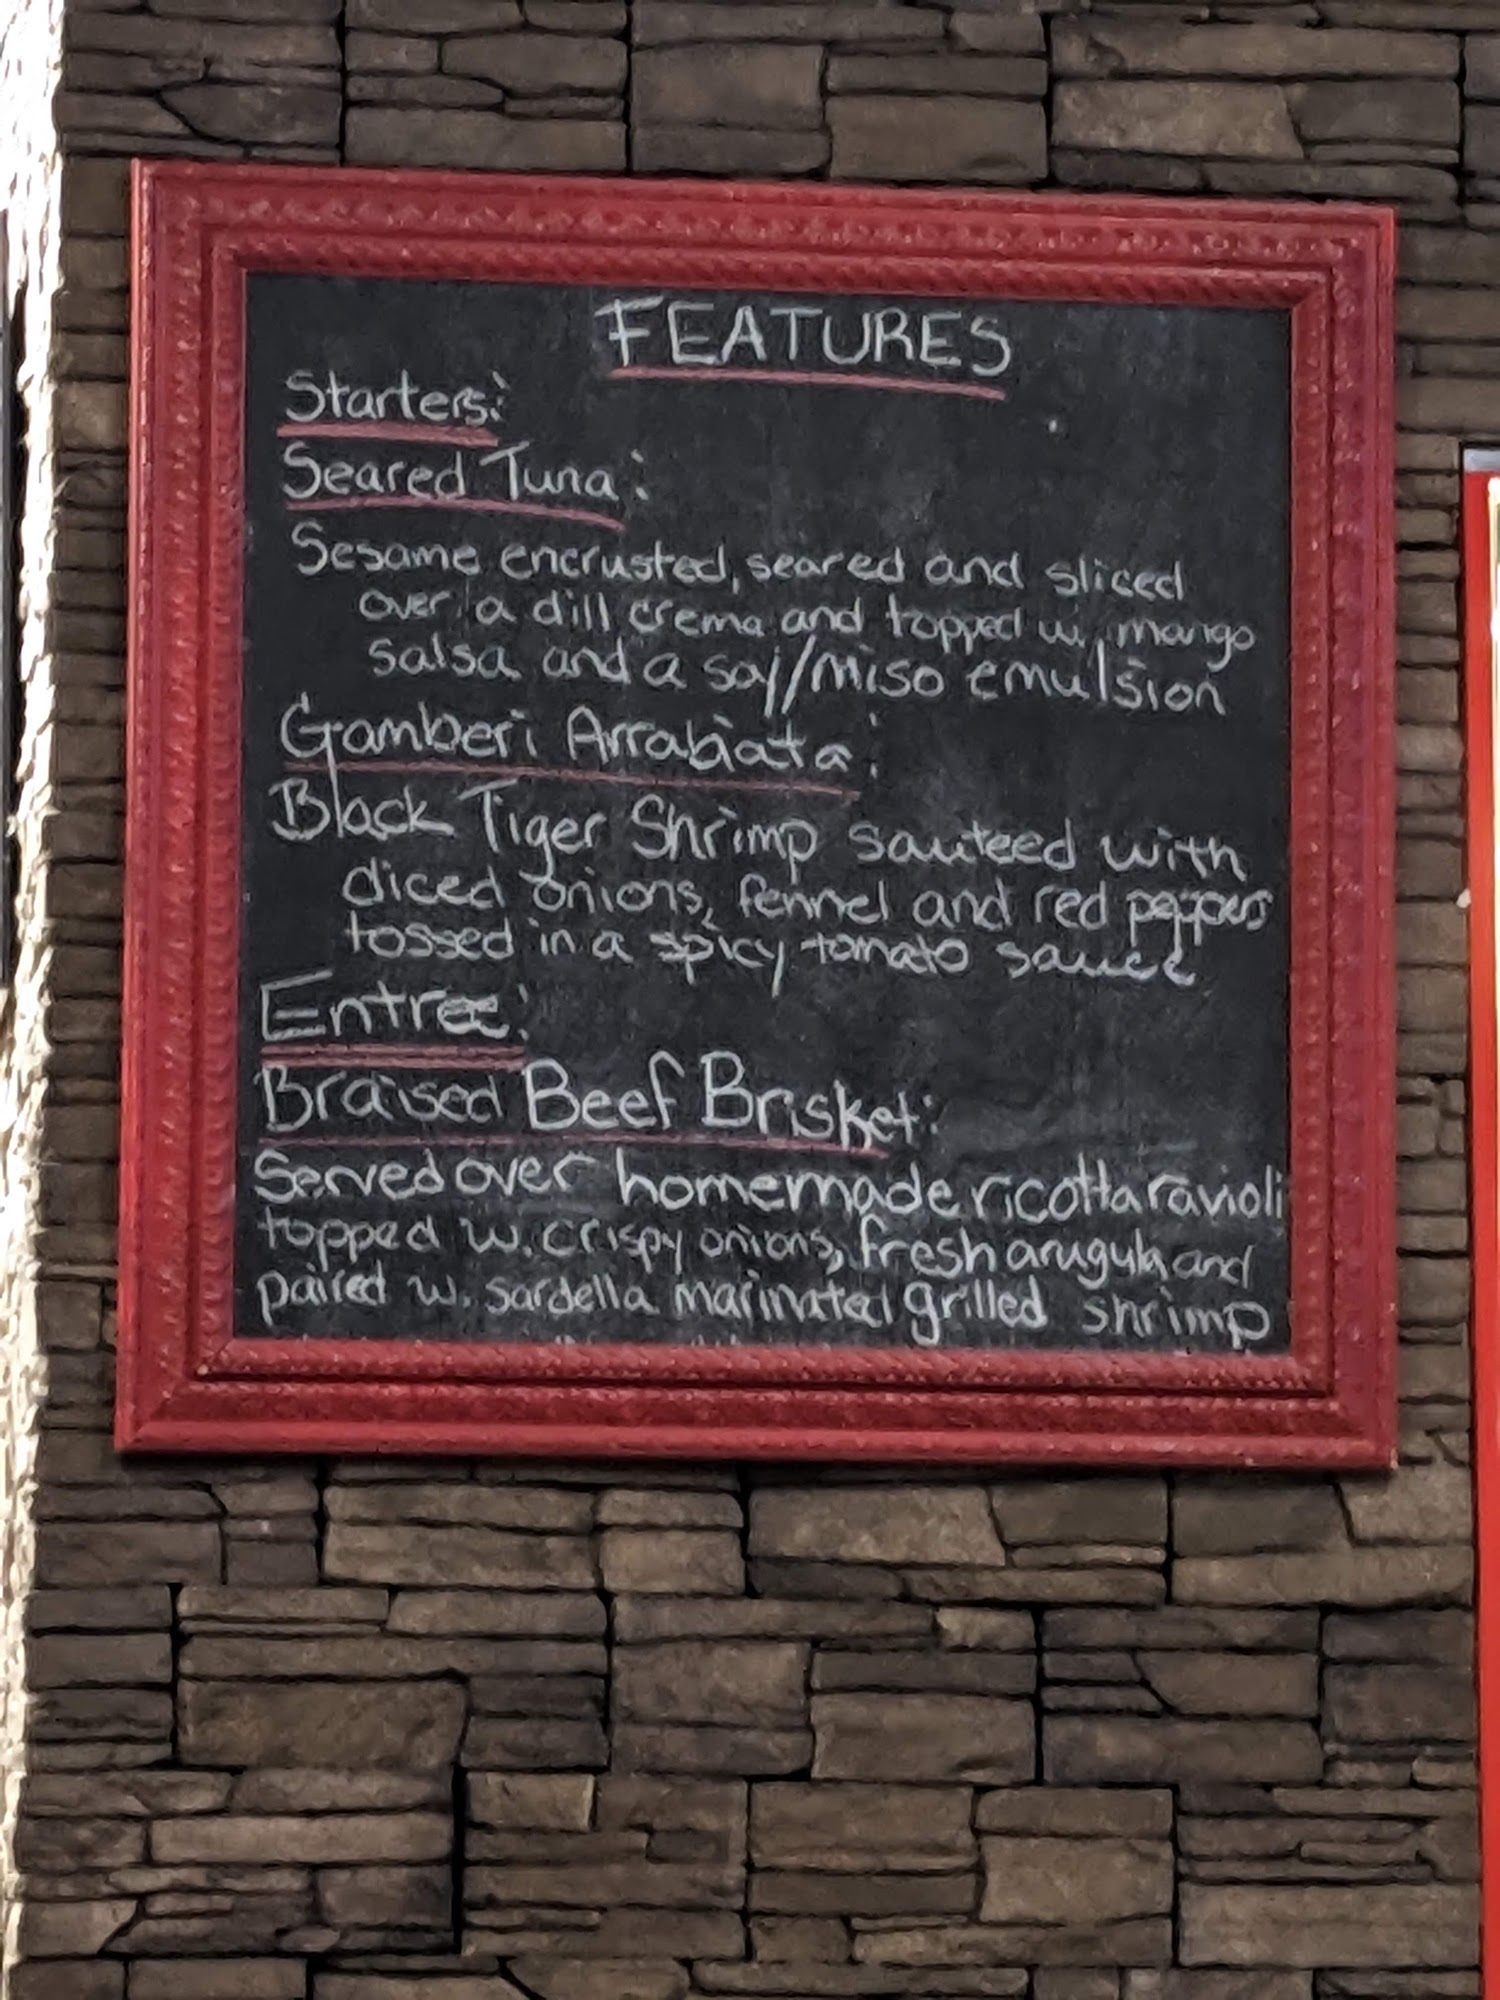 FEATURES
Starters:
Seared Tuna:
Sesame encrusted, seared and sliced
over a dill crema and topped w. mango
salsa and a soy/miso emulsion
Gamberi Arrabiata:
Black Tiger Shrimp sauteed with
diced onions, fennel and red peppers
tossed in a spicy tomato sauce
Entree:
Braised Beef Brisket:
Served over homemade ricotta ravioli
topped w. crispy onions, fresh arugula and
paired w. sardella marinated grilled shrimp